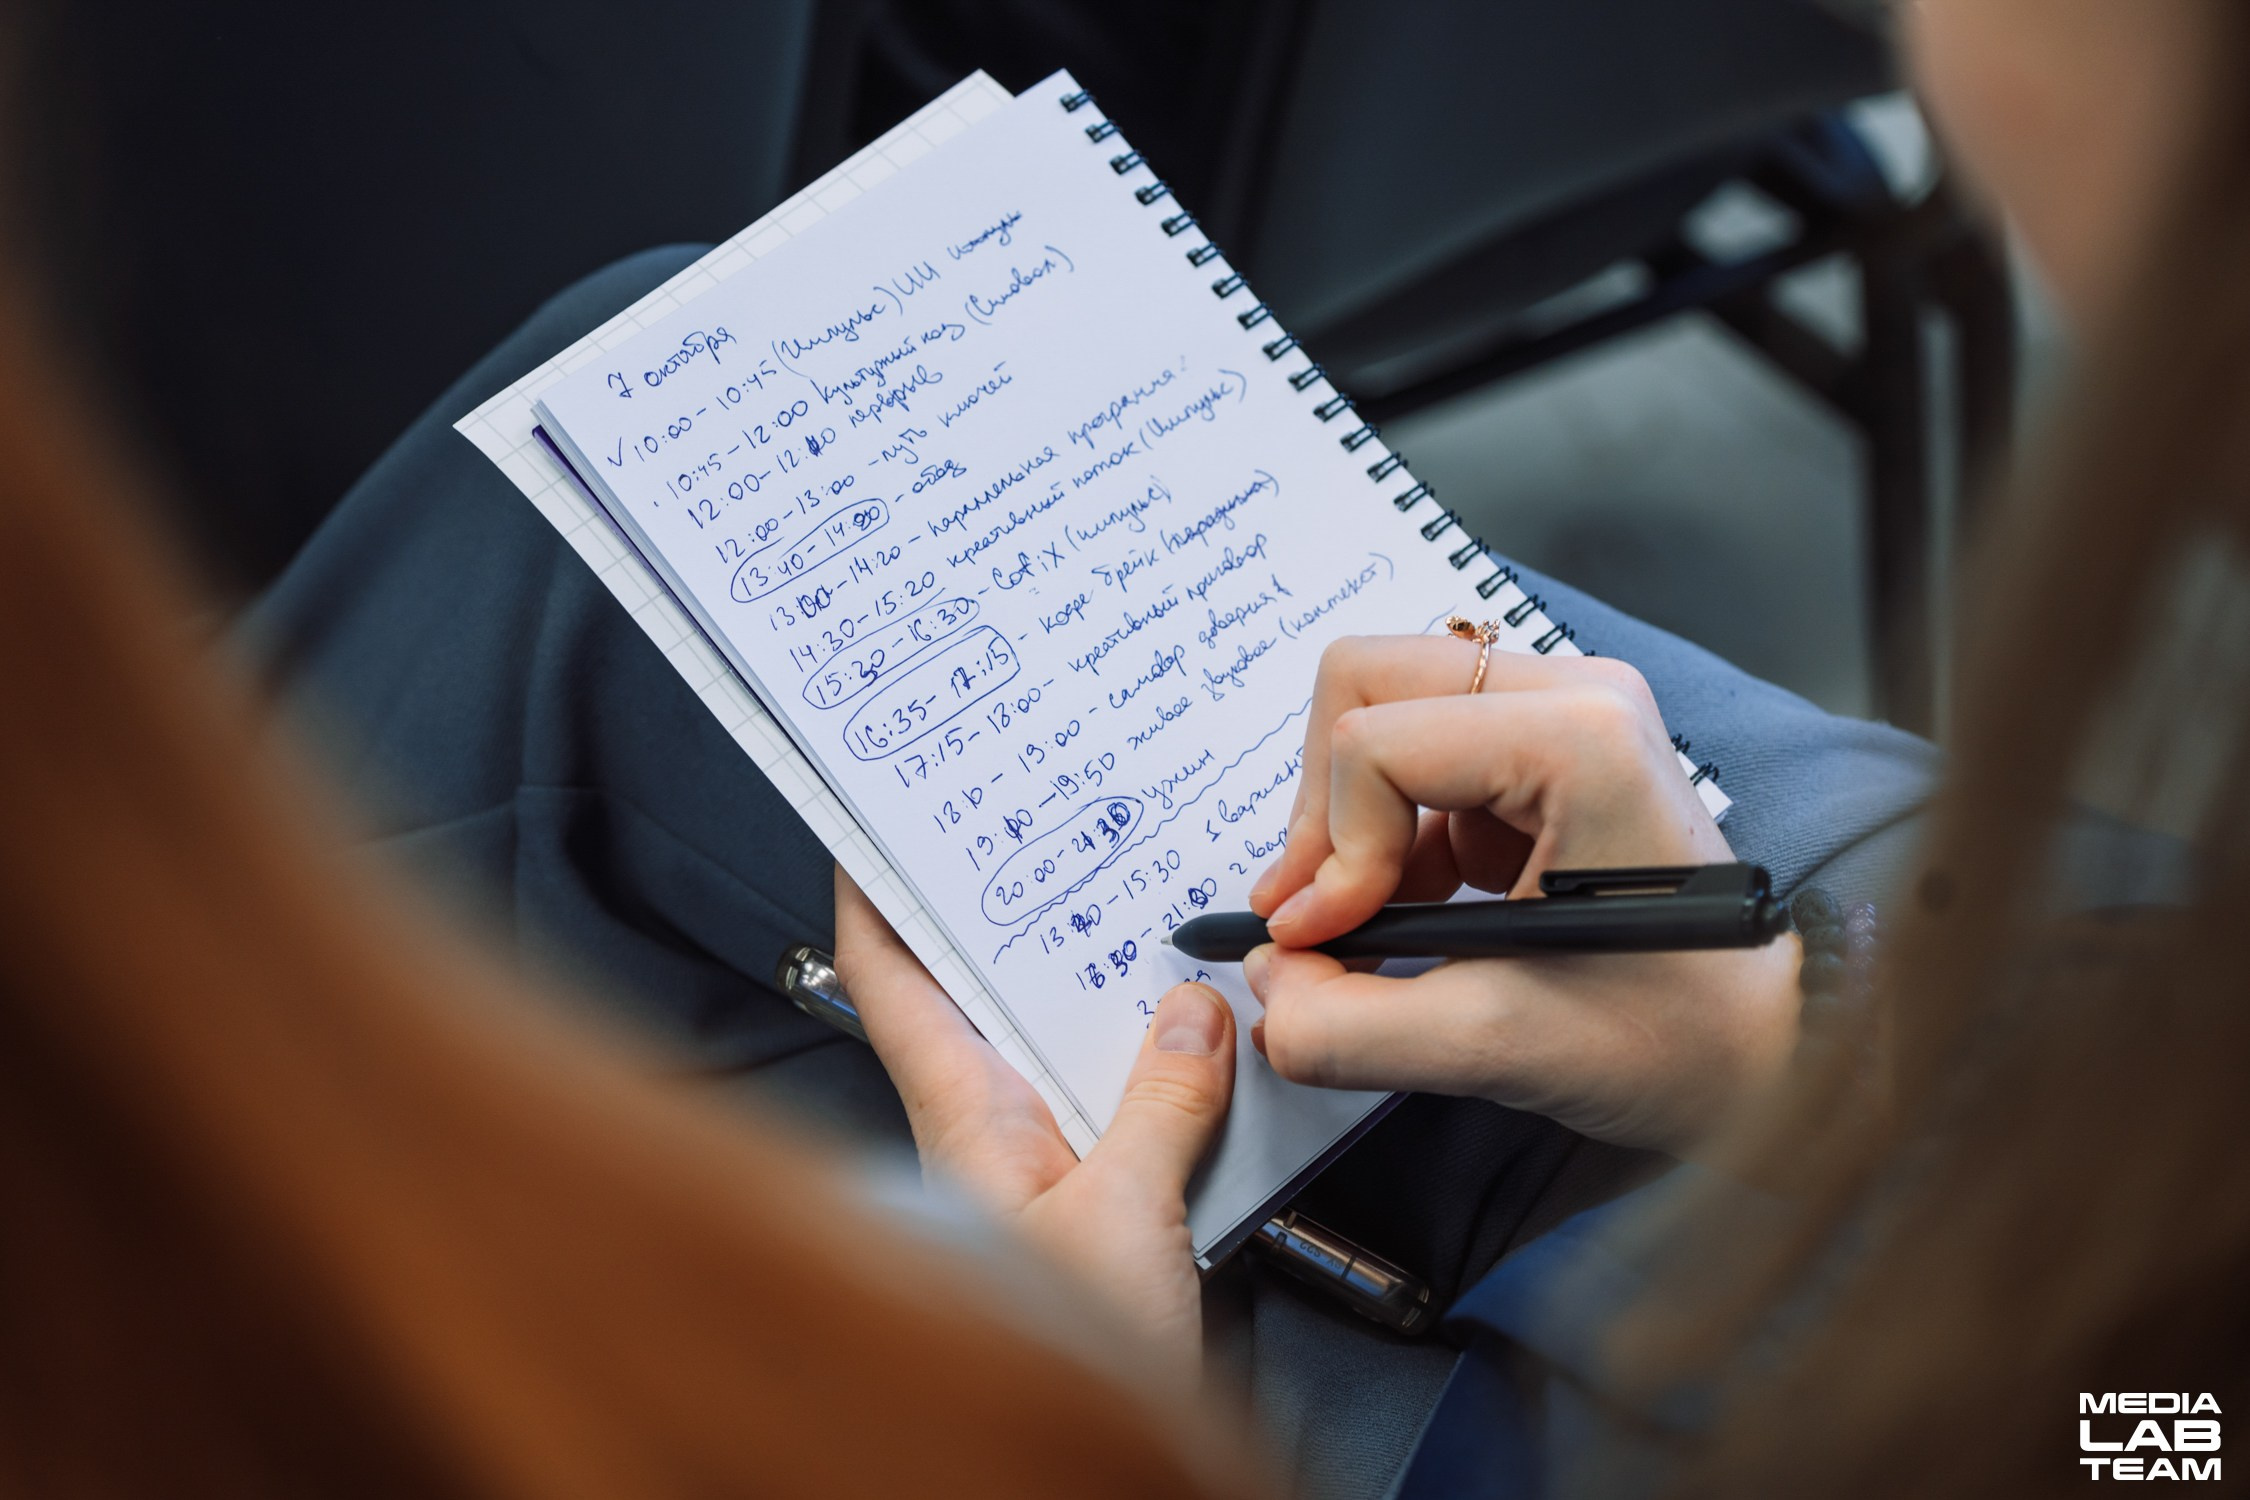 7 октября
✓ 10:00 - 10:45 (Импульс) ИИ
10:45 - 12:00 культурный код (Синовал)
12:00 - 12:10 перерыв
12:00 - 13:00 - путь ключей
13:40 - 14:20 - обед
13:00 - 14:20 - параллельная программа:
14:30 - 15:20 креативный поток (Импульс)
15:20 - 16:30 - (импульс)
16:35 - 17:15 - кофе брейк
17:15 - 18:00 - креативный приговор
- 19:00 - самовар доверия
19:10 - 19:50 живое звуковое (контекст)
20:00 - 21:30 ужин
- 15:30 1 вариант
- 21: 2 вар
MEDIA
LAB
TEAM